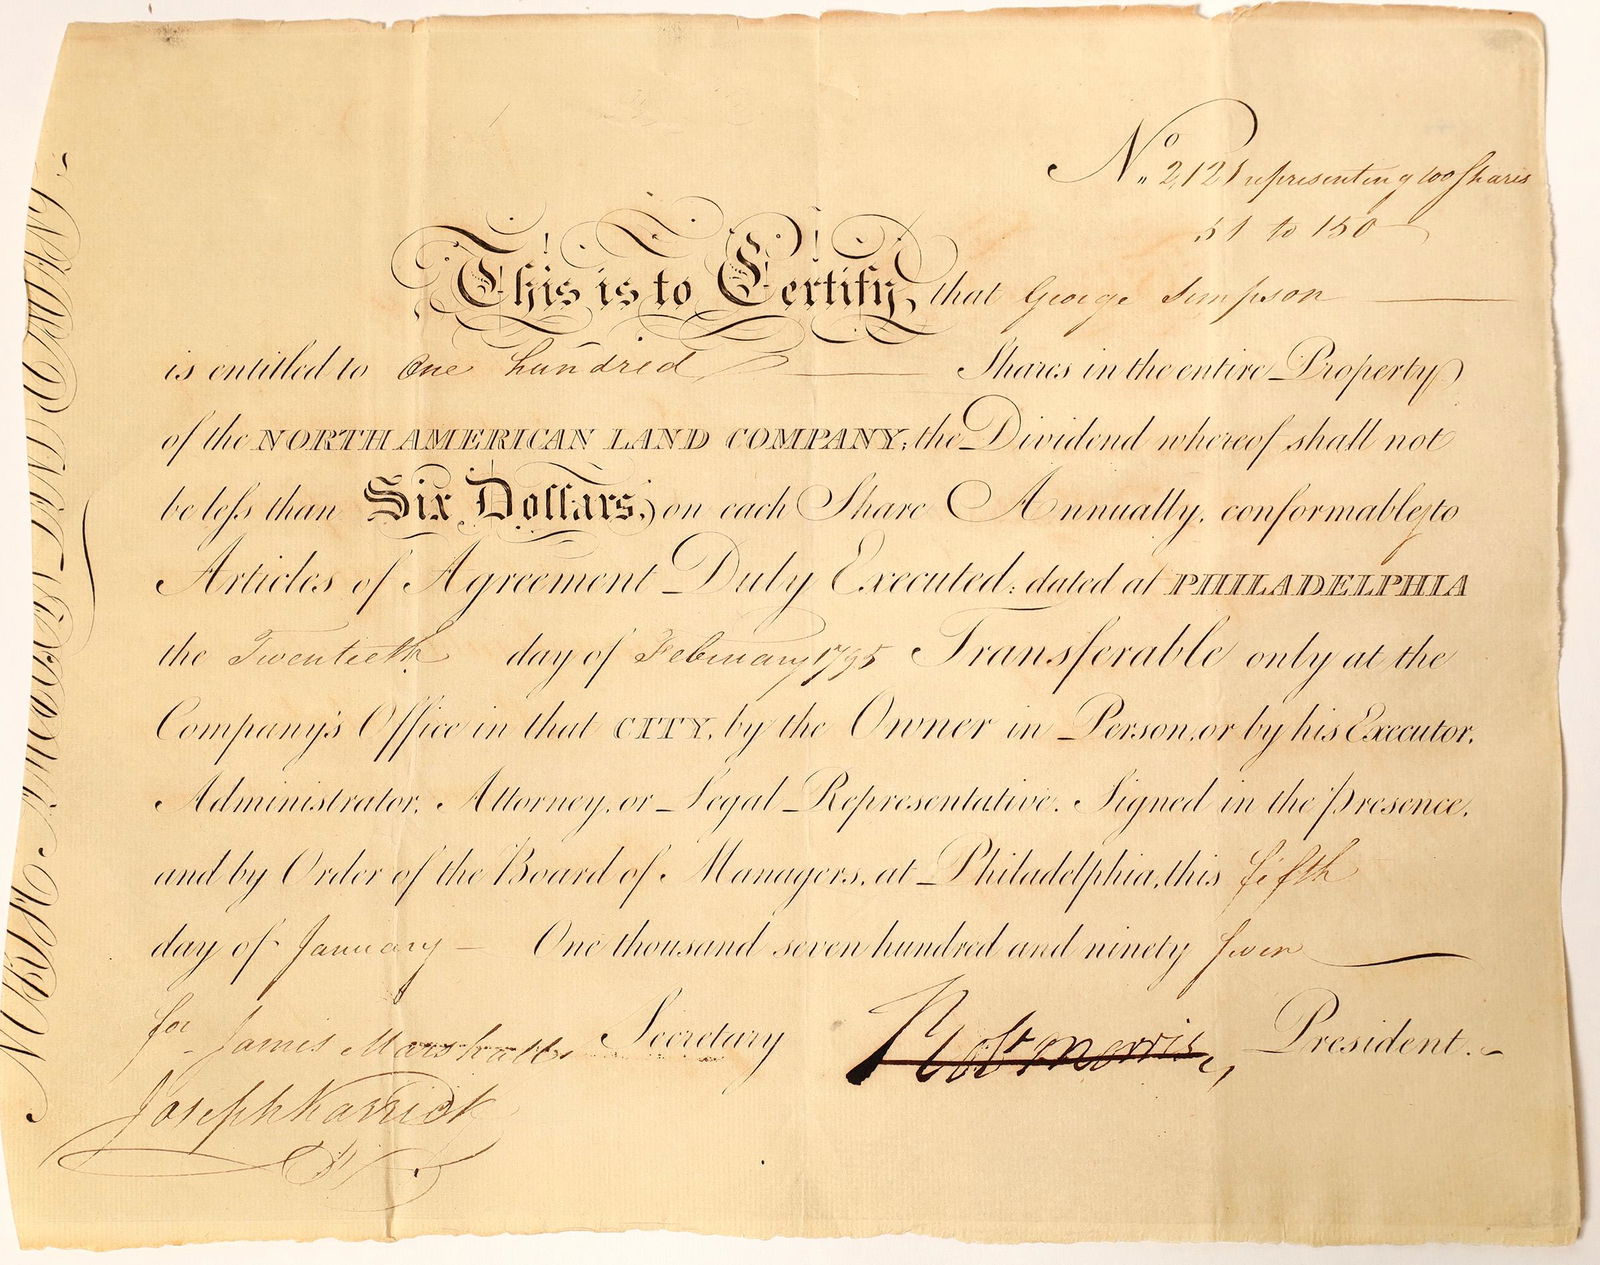 No. 2,121 representing 100 Shares
51 to 150
This is to Certify, that George Simpson
is entitled to One hundred Shares in the entire Property
of the NORTH AMERICAN LAND COMPANY; the Dividend whereof shall not
be leſs than Six Dollars, on each Share Annually, conformably to
Articles of Agreement Duly Executed; dated at PHILADELPHIA
the Twentieth day of February 1795 Transferable only at the
Company's Office in that CITY, by the Owner in Person, or by his Executor,
Administrator, Attorney, or Legal Representative. Signed in the presence,
and by Order of the Board of Managers, at Philadelphia, this fifth
day of January One thousand seven hundred and ninety
for James Marshall, Secretary Robt Morris, President.
Joseph Karrick